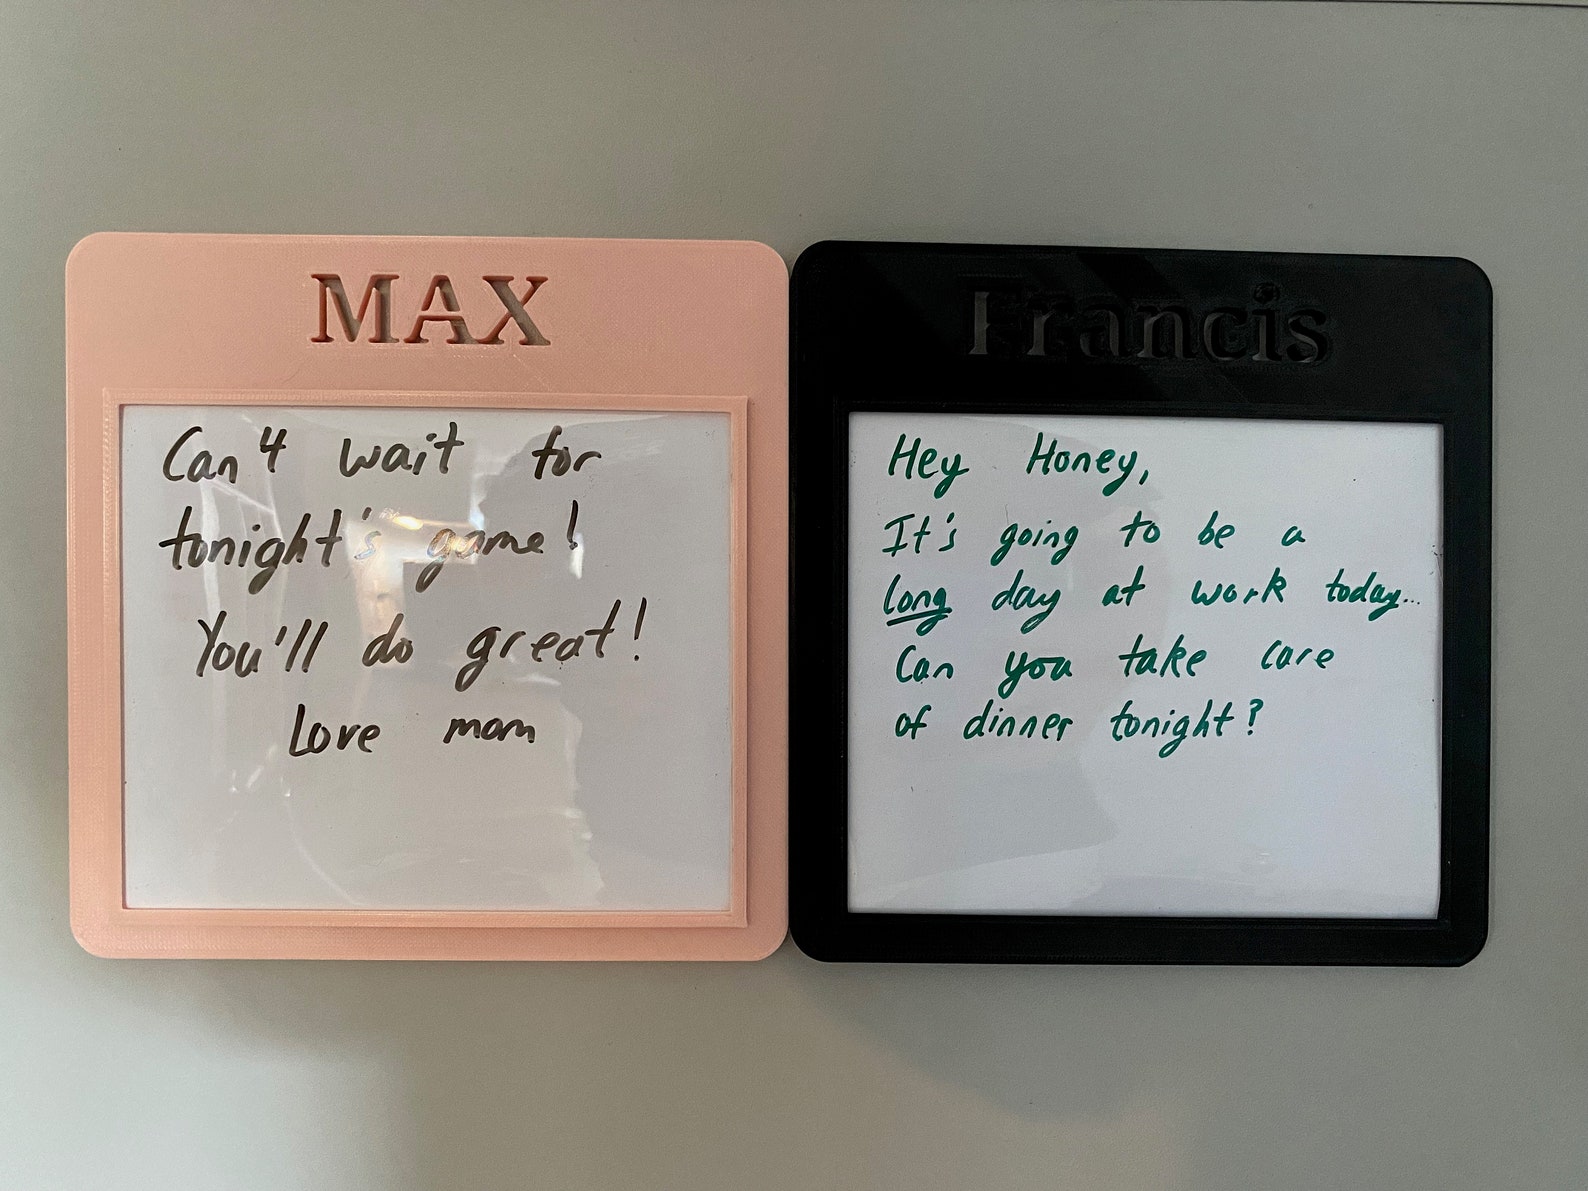 MAX
Can't wait for
tonight's game!
You'll do great!
Love mom
Francis
Hey Honey,
It's going to be a
long day at work today...
Can you take care
of dinner tonight?